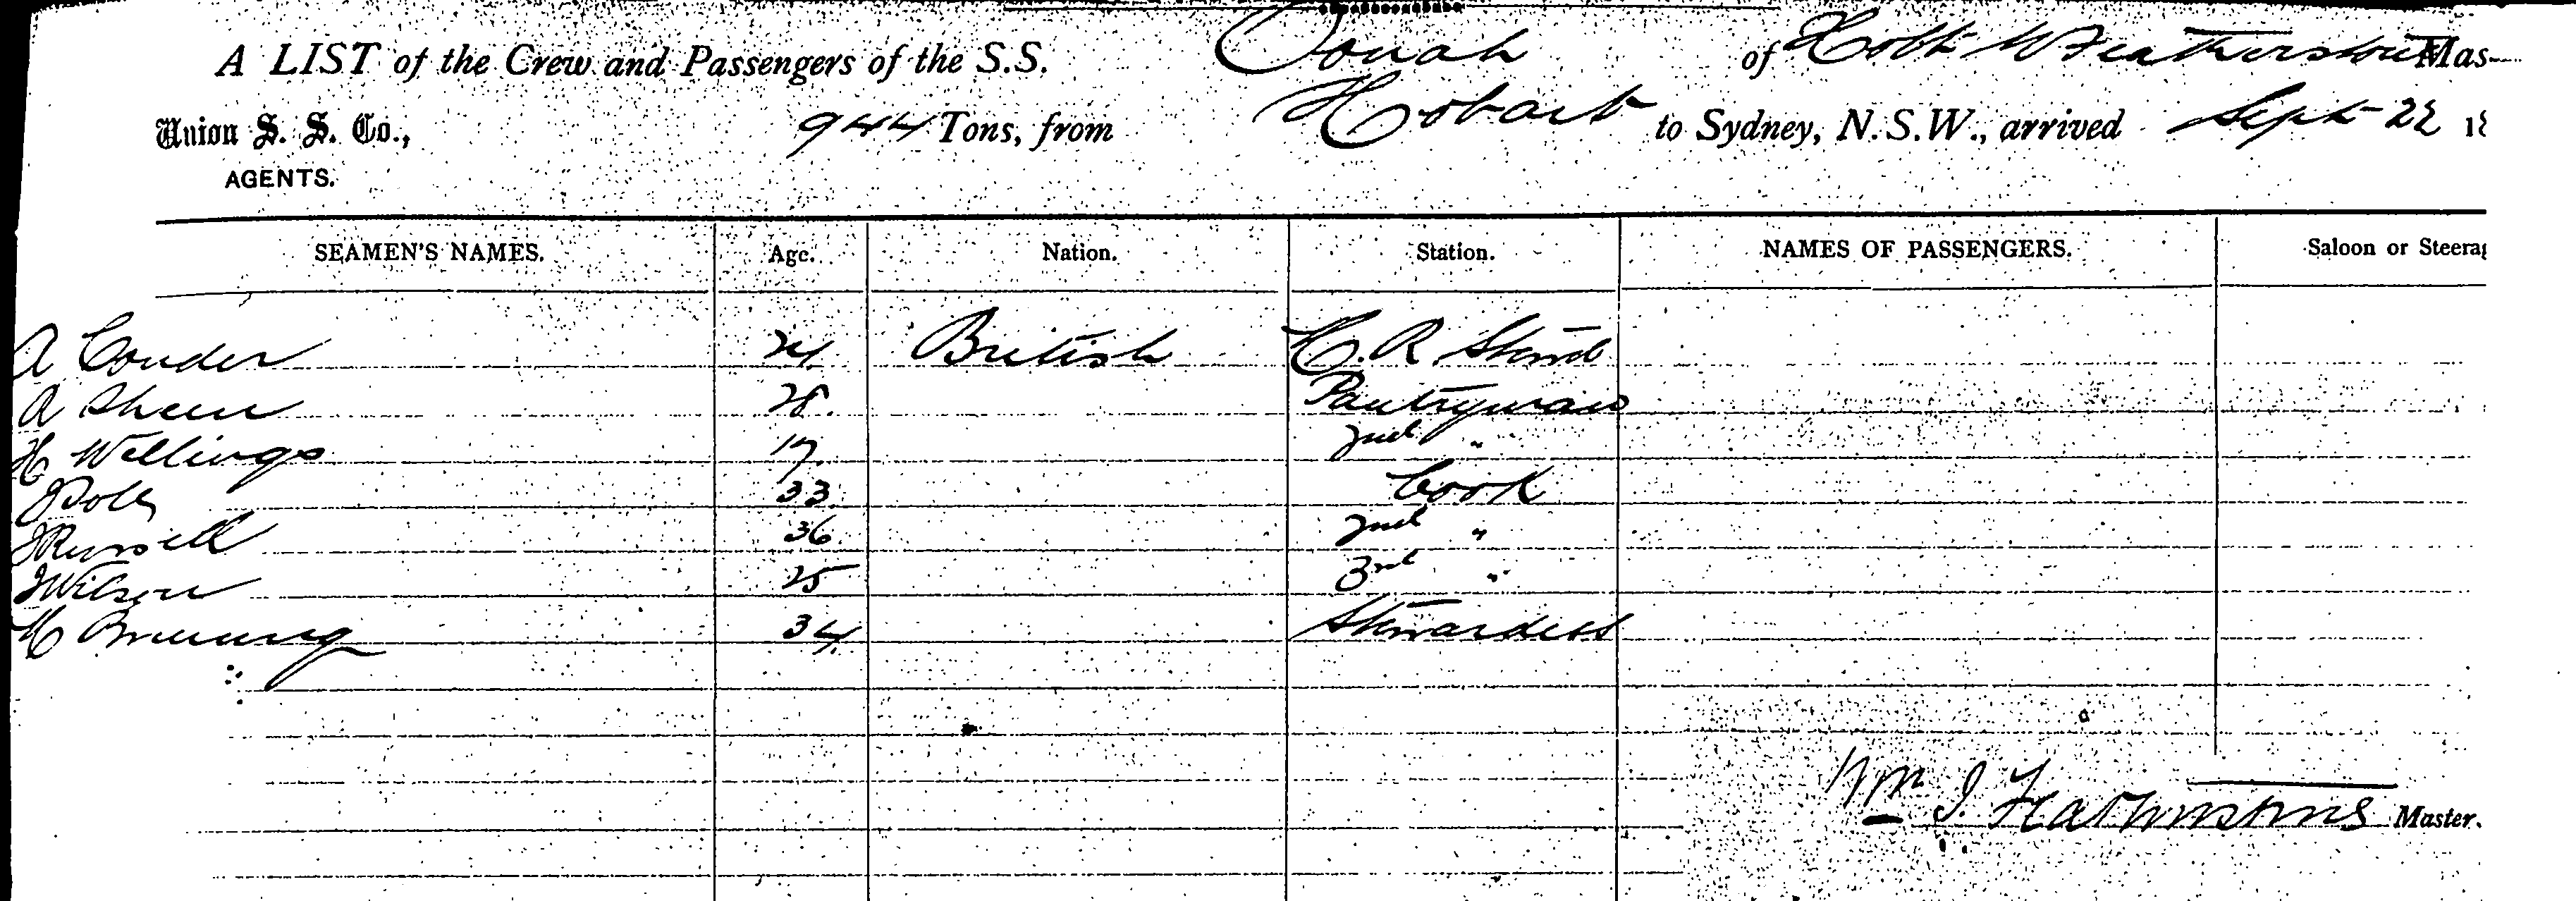 A LIST of the Crew and Passengers of the S.S. Oonah of Hobt W Featherstone Mas
Union S. S. Co., 944 Tons, from Hobart to Sydney, N.S.W., arrived Sept 22 18
AGENTS.
SEAMEN'S NAMES. Age. Nation. Station. NAMES OF PASSENGERS. Saloon or Steerag
A Conder 24 British C. R Stewd
A Sheen 28 Pantryman
H Wellings 17 2nd "
33 Cook
J Russell 36 2nd "
J Wilson 25 3rd "
34 Stewardess
Wm J. Featherstone Master.